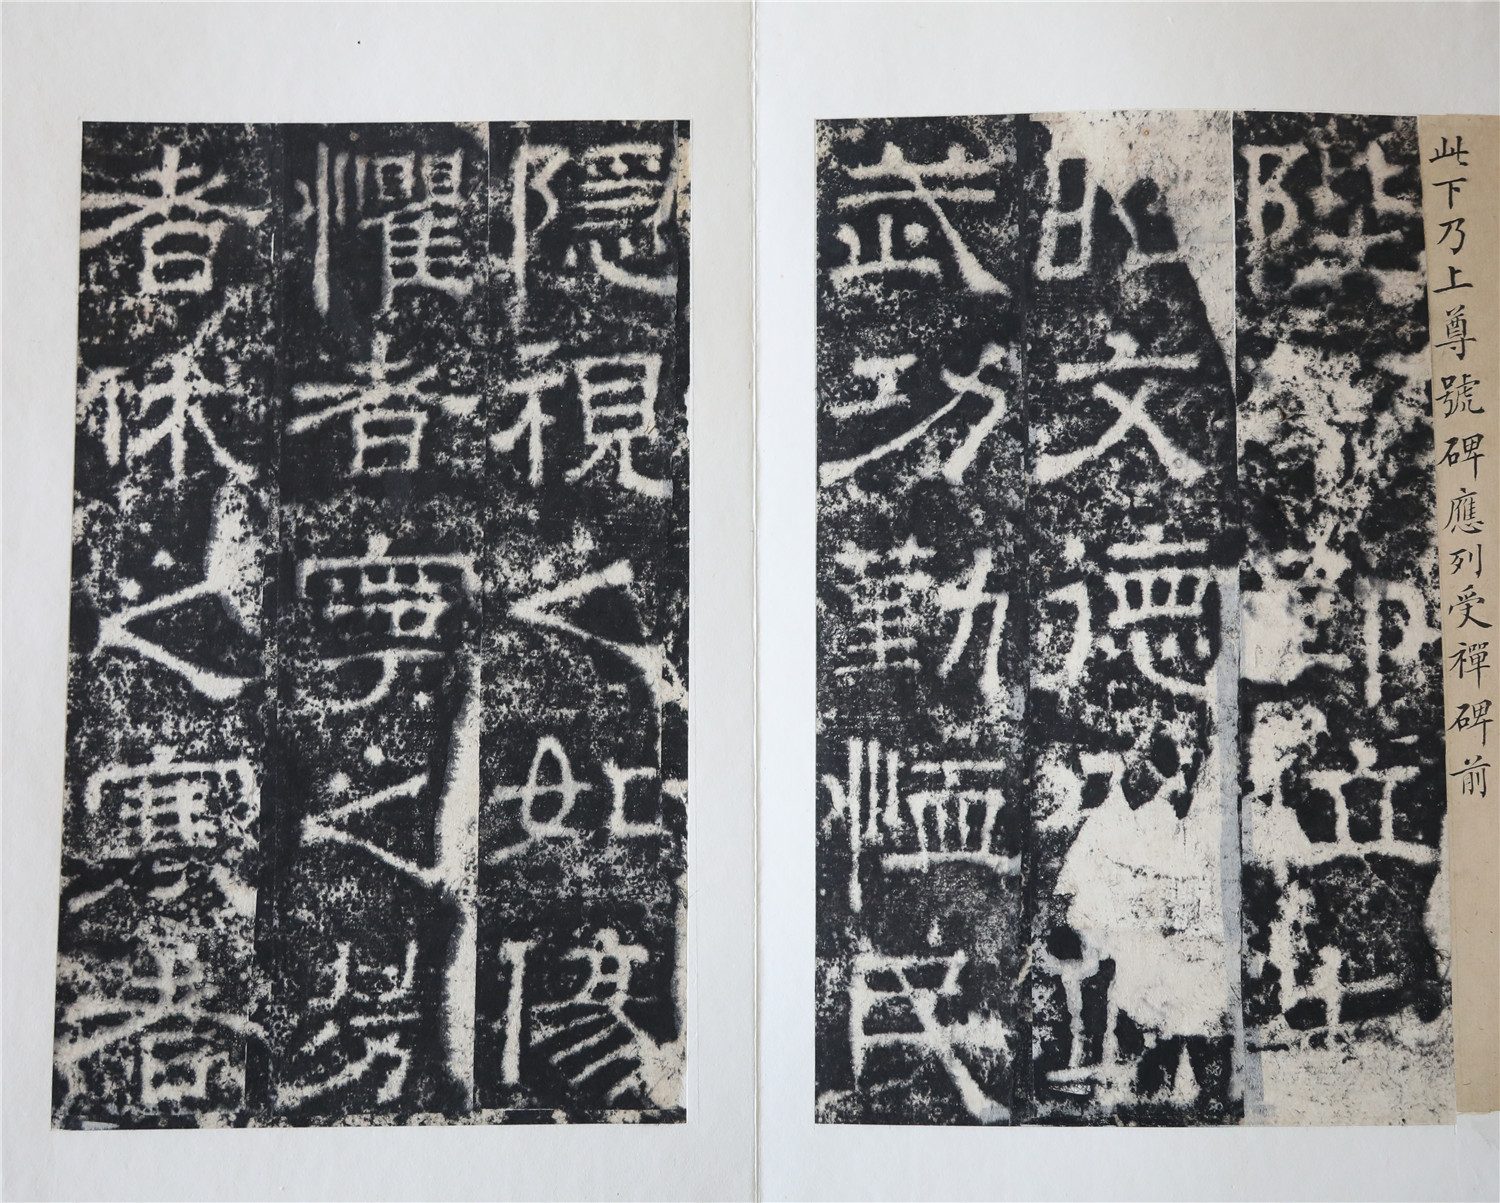 此下乃上尊號碑應列受禪碑前
陛即位
昭文德以
武功勤恤民
隱視之如傷
懼者寧之勞
者休之寒者